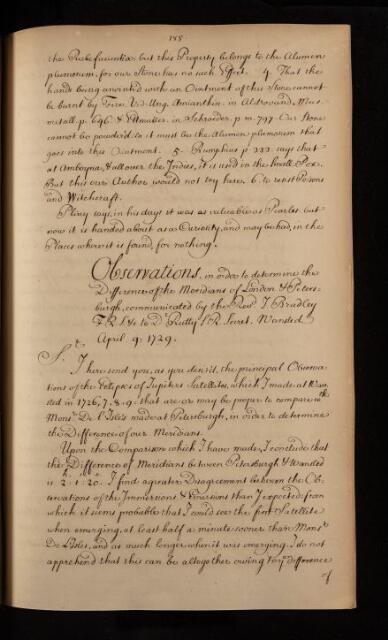 188
the Rubefacientia: but this Property belongs to the Alumen
plumosum, for our Stone has no such Effect. 4. That the
hands being anointed with an Ointment of this Stone cannot
be burnt by Fire. Vid. Ung. Amianthin. in Aldrovand. Mus.
metall. p. 696. & Potmatier. in Schroeder. p. m. 797. Our Stone
cannot be powder'd so it must be the Alumen plumosum that
goes into this Ointment. 5. Rumphius p. 333. says that
at Amboyna, & all over the Indies, it is used in the small Pox.
But this our Author would not try here. 6. to resist Poisons
and Witchcraft.
Pliny says, in his days it was as valuable as Pearles. but
now it is handed about as a Curiosity, and may be had, in the
Places where it is found, for nothing.
Observations, in order to determine the
Difference of the Meridians of London & Peters-
burgh, communicated by the Revd. J. Bradley
F. R. S. &c. to Dr. Rutty S. R. Secret. Wansted
April 9. 1729.
Sr.
I here send you, as you desir'd, the principal Observa-
tions of the Eclipses of Jupiters Satellites, which I made at Wan-
sted in 1726, 7, 8, 9. that are or may be proper to compare with
Monsr. De l'Isle's made at Petersburgh, in order to determine
the Difference of our Meridians.
Upon the Comparison which I have made, I conclude that
the Difference of Meridians between Petersburgh & Wansted
is 2. 1. 20. I find a greater Disagreement between the Ob-
servations of the Immersions & Emersions than I expected: from
which it seems probable that I could see the first Satellite
when emerging, at least half a minute sooner than Monsr
De L'Isles, and as much longer when it was emerging. I do not
apprehend that this can be altogether owing to ye difference
of